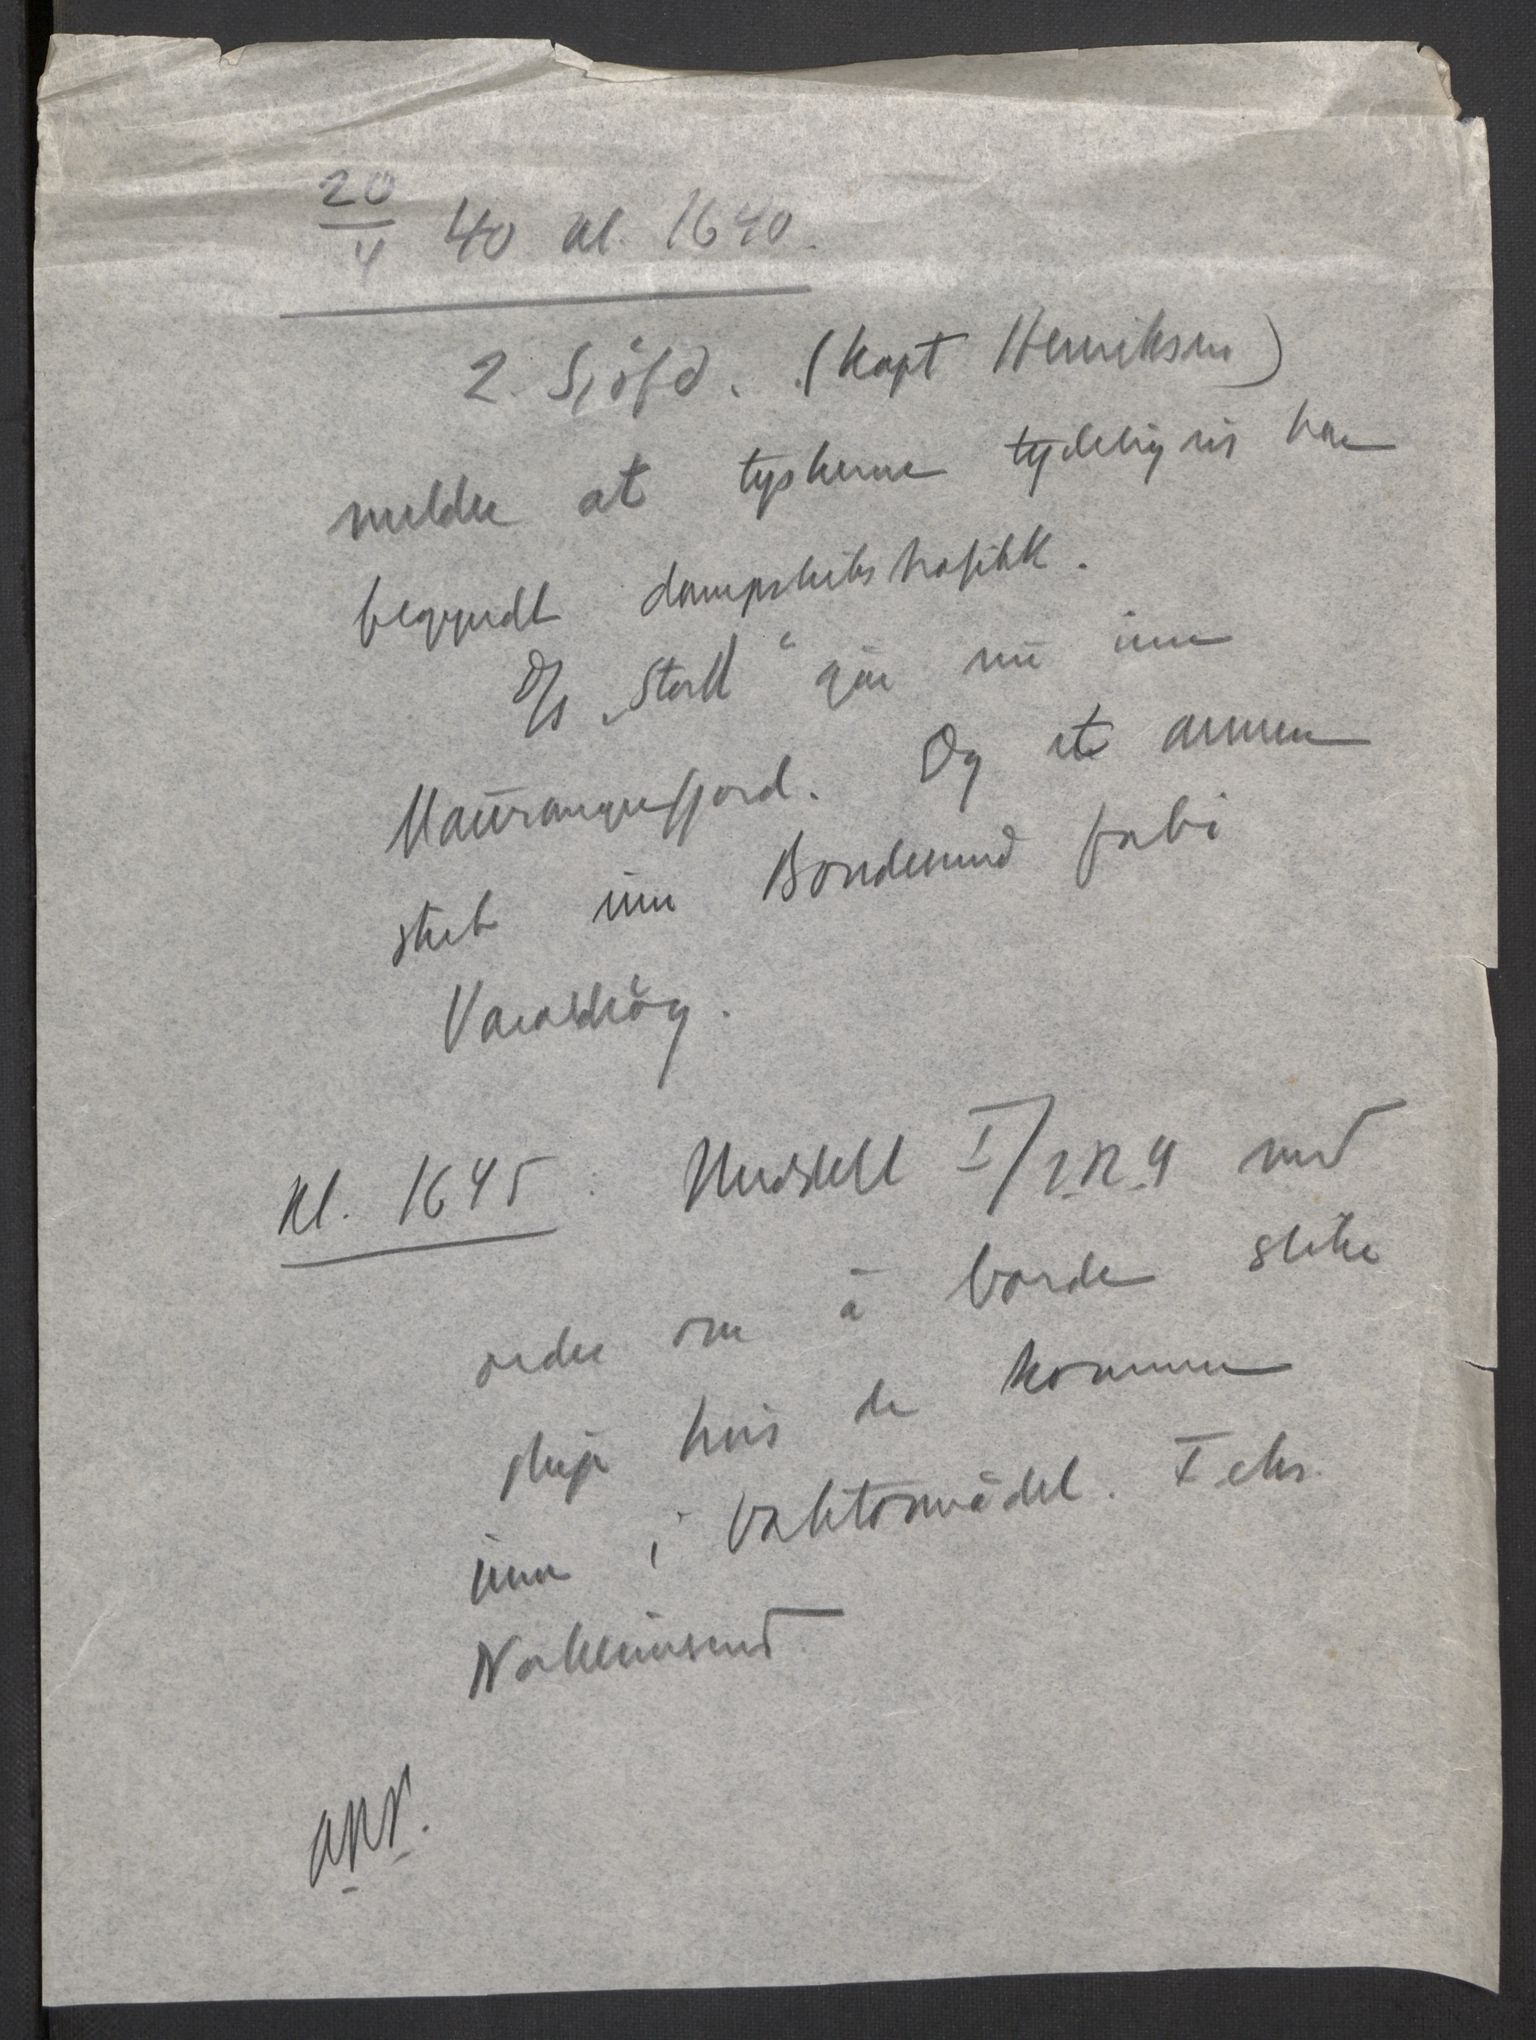 20/4 40 kl. 1640.
2. Sjöfd. (Kapt Henriksen)
melder at tyskerne tydeligvis har
begyndt dampskibstrafikk.
D/S „Stord“ går nu inn
Maurangerfjord. Og et annen
skib inn Bondesund forbi
Varaldsöy.
Kl. 1645: Meddelt I/I.R.9 med
ordre om å borde slike
skip hvis de kommer
inn i vaktområdet. I eks.
Norheimsund